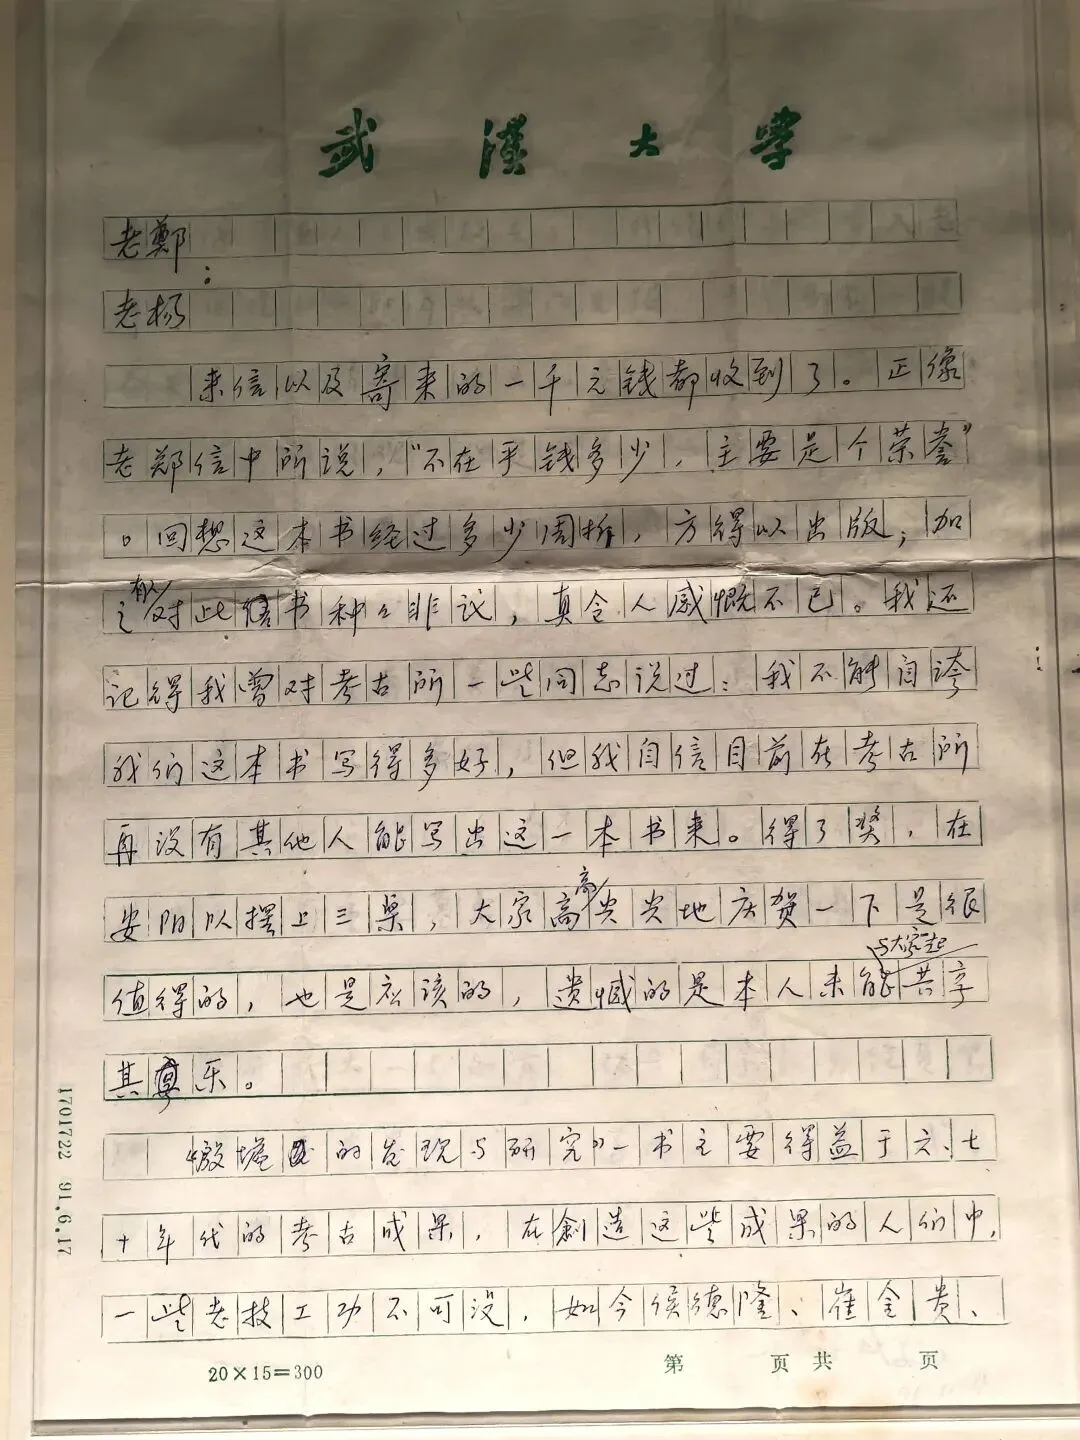 武漢大學
老鄭
：
老杨
来信以及寄来的一千元钱都收到了。正像
老郑信中所说，“不在乎钱多少，主要是个荣誉”
。回想这本书经过多少周折，方得以出版；加
之有人对此书种々非议，真令人感慨不已。我还
记得我曾对考古所一些同志说过：我不能自誇
我们这本书写得多好，但我自信目前在考古所
再没有其他人能写出这一本书来。得了奖，在
安阳队摆上三桌，大家高高贵贵地庆贺一下是很
值得的，也是应该的，遗憾的是本人未能与大家一起共享
其乐。
的发现与研究》一书主要得益于六、七
十年代的考古成果，在創造这些成果的人们中，
一些老技工功不可没，如今侯德隆、崔金贵、
20×15=300
第 页 共 页
1701722 91.6.17